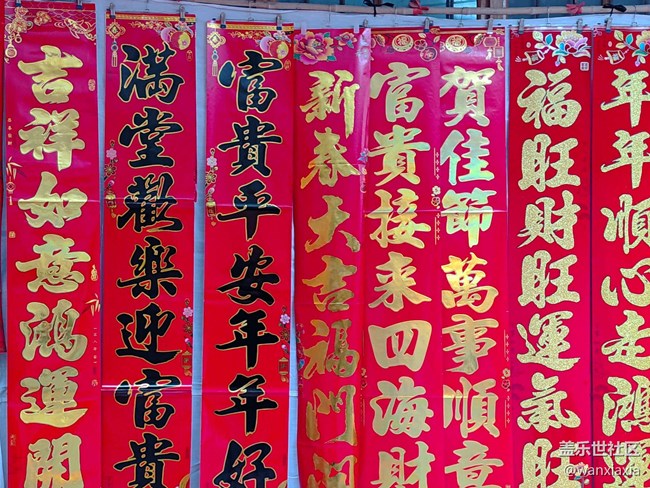 吉祥如意鴻運開
滿堂歡樂迎富貴
富貴平安年年好
新春大吉福門
富貴接來四海財
賀佳節萬事順意
福旺財旺運氣旺
年年順心走鴻
盖乐世社区
@wanxiaxia